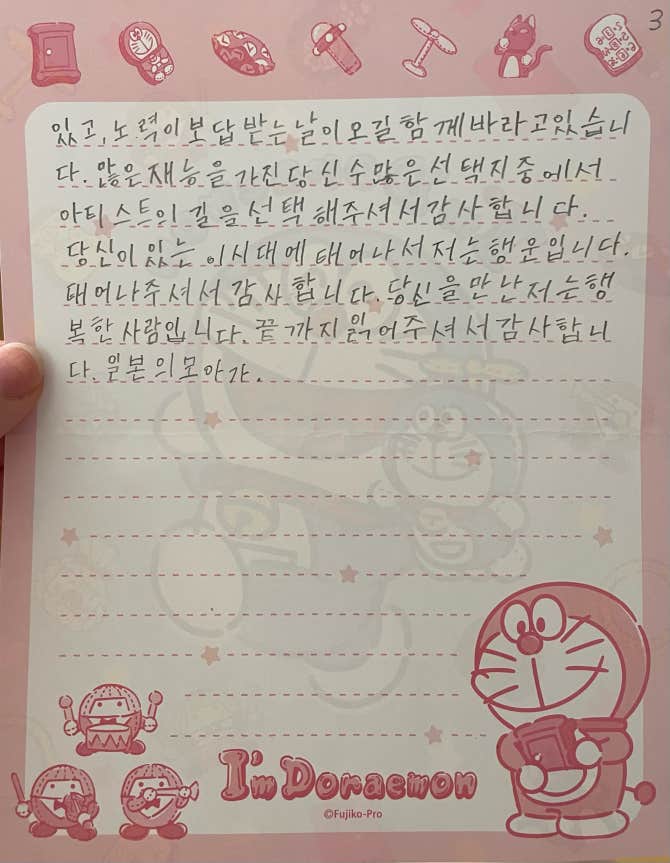 3
있고, 노력이 보답 받는 날이 오길 함께 바라고있습니
다. 많은 재능을 가진 당신 수많은 선택지 중에서
아티스트의 길을 선택해주셔서 감사합니다.
당신이 있는 이시대에 태어나서 저는 행운입니다.
태어나주셔서 감사합니다. 당신을 만난 저는 행
복한 사람입니다. 끝까지 읽어주셔서 감사합니
다. 일본의 모아가.
I'm Doraemon
©Fujiko-Pro